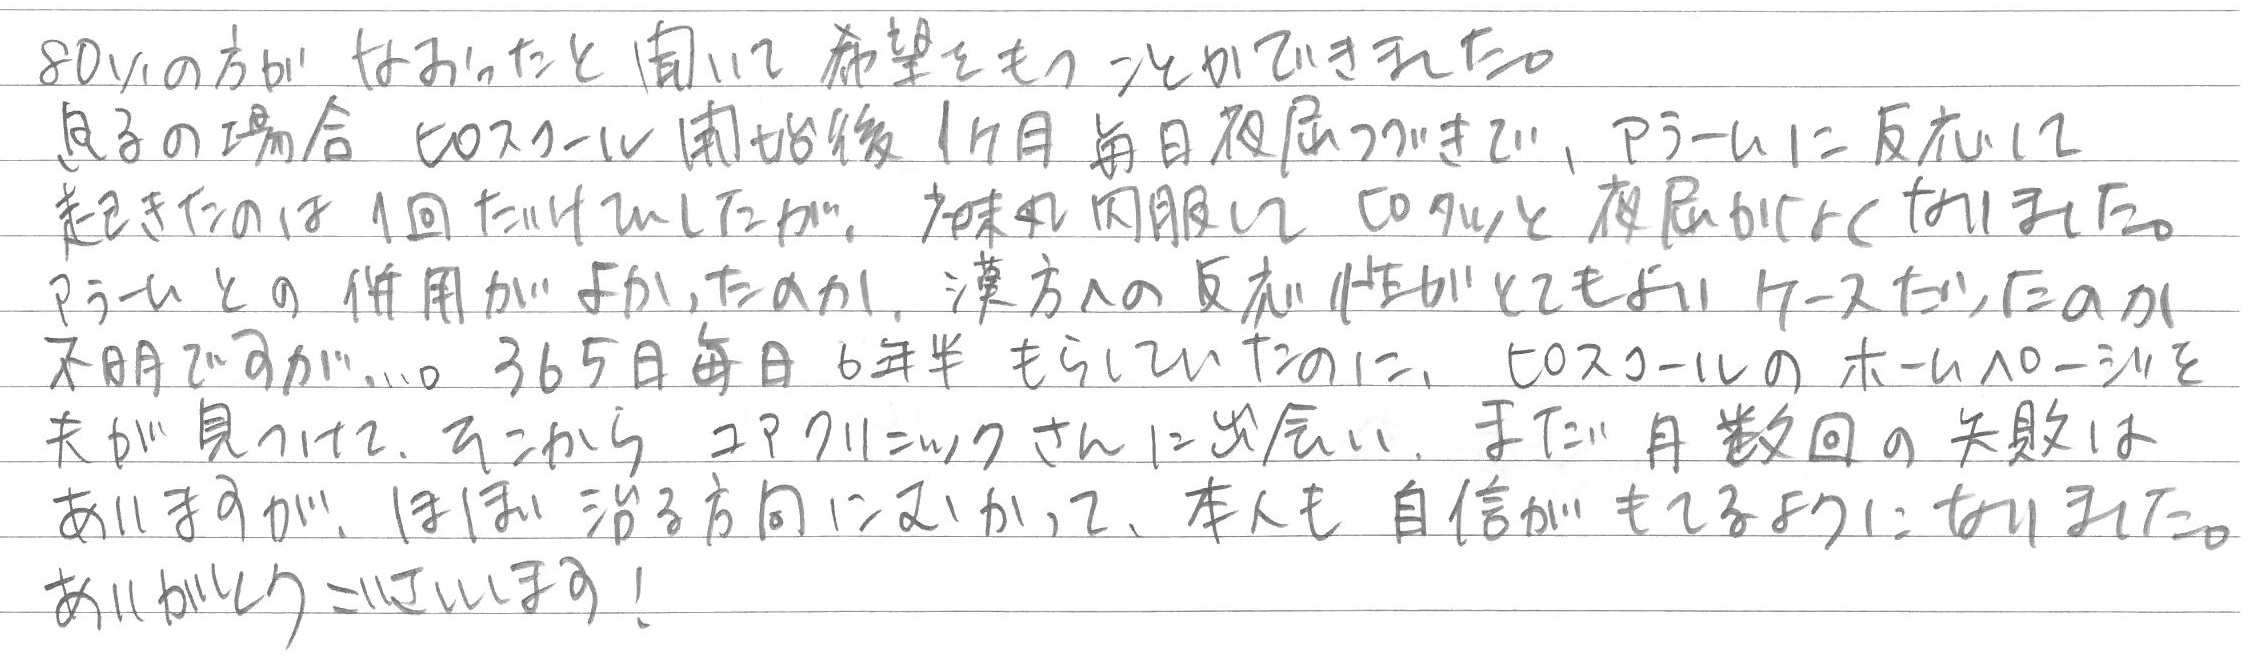 80%の方が なおったと聞いて 希望をもつことができました。
息子の場合 ピスコール開始後 1ヶ月 毎日夜尿つづきで、アラームに反応して
起きたのは1回だけでしたが、 内服して ピタッと 夜尿がよくなりました。
アラームとの併用がよかったのか、漢方への反応性がとてもよいケースだったのか
不明ですが…。365日毎日6年半もらしていたのに、ピスコールのホームページを
夫が見つけて、そこから コアクリニックさんに出会い、まだ月数回の失敗は
ありますが、ほぼ治る方向にむかって、本人も自信がもてるようになりました。
ありがとうございます!